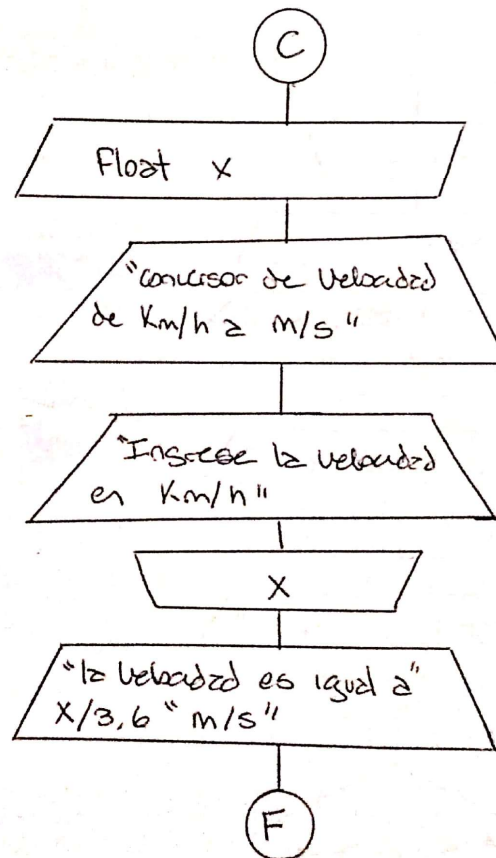 C
Float x
"conversor de Velocidad
de Km/h a m/s"
"Ingrese la velocidad
en Km/h"
X
"la velocidad es igual a"
X/3,6 "m/s"
F